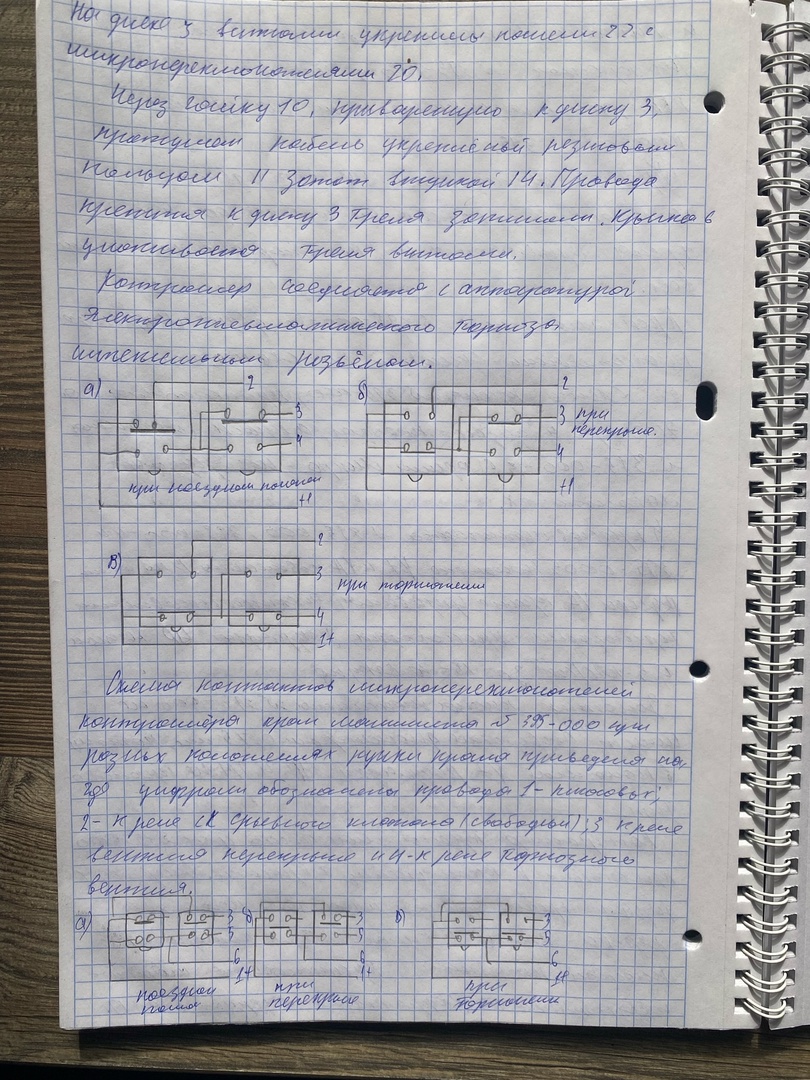 На диске 3 винтами укреплены панели 22 с
микропереключателями 20.
Через гайку 10, приваренную к диску 3,
пропущен кабель укреплёный резиновым
кольцом 11 Зажат втулкой 14. Провода
крепится к диску 3 тремя зажимами. Крышка в
тремя винтами.
Контроллер соединяется с аппаратурой
электропневматического тормоза
штепсельным разъёмом.
а) 2 б) 2
3 3 при
4 4 перекрыше.
при поездном положен
+1 +1
в) 2
3 при торможении
4
1+
Схема контактов микропереключателей
контроллера кран машиниста № 395-000 при
разных положениях ручки крана приведена на,
где цифрами обозначены провода 1- плюсовый;
2- к реле срывного клапана (свободный); 3 к реле
вентиля перекрыше и 4- к реле тормозного
вентиля.
а) 3 б) 3 в) 3
5 5 5
6 6 6
1+ 1+ 1+
поездном при при
перекрыше торможении